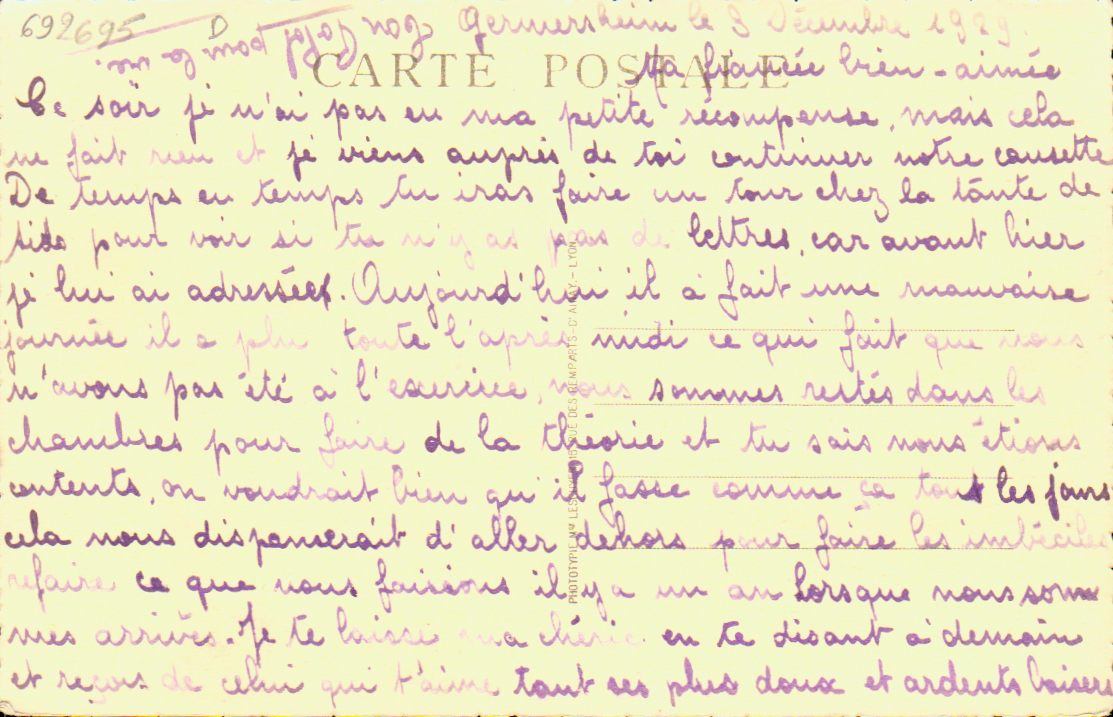 692695 D
Germersheim le 3 Décembre 1929.
CARTE POSTALE
Ma fiancée bien-aimée
Ce soir je n'ai pas eu ma petite récompense, mais cela
ne fait rien et je viens auprès de toi continuer notre causette
De temps en temps tu iras faire un tour chez la tante de
sids pour voir si tu n'y as pas de lettres, car avant hier
je lui ai adressées. Aujourd'hui il a fait une mauvaise
journée il a plu toute l'après midi ce qui fait que nous
n'avons pas été à l'exercice, nous sommes restés dans les
chambres pour faire de la théorie et tu sais nous étions
contents, on voudrait bien qu'il fasse comme ça tout les jours
cela nous dispenserait d'aller dehors pour faire les imbéciles
refaire ce que nous faisions il y a un an lorsque nous som
mes arrivés. Je te laisse ma chérie en te disant à demain
et reçois de celui qui t'aime tant ses plus doux et ardents baisers
Ton pour la vie.
PHOTOTYPIE REMPARTS-D'AINAY. - LYON